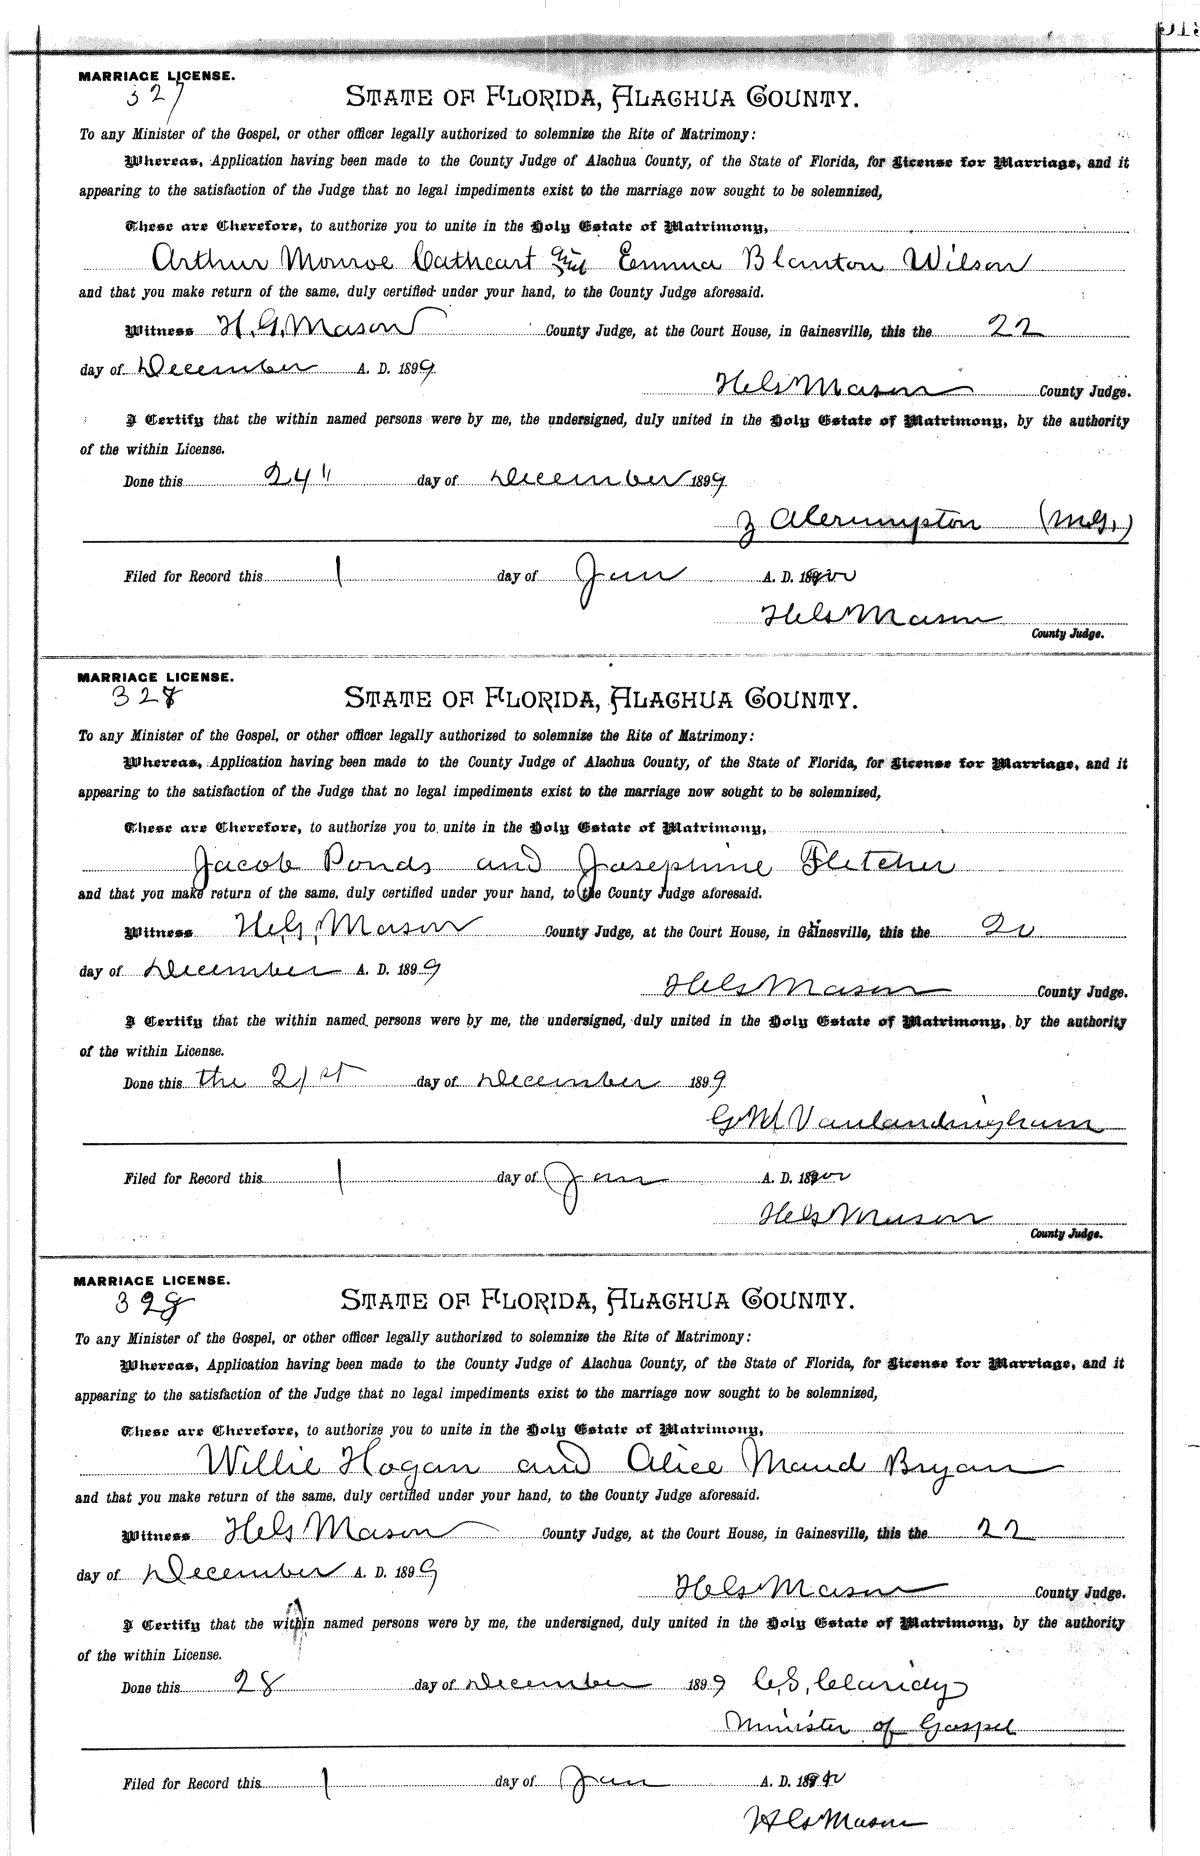 MARRIAGE LICENSE.
327
STATE OF FLORIDA, ALACHUA COUNTY.
To any Minister of the Gospel, or other officer legally authorized to solemnize the Rite of Matrimony:
Whereas, Application having been made to the County Judge of Alachua County, of the State of Florida, for License for Marriage, and it
appearing to the satisfaction of the Judge that no legal impediments exist to the marriage now sought to be solemnized,
These are Therefore, to authorize you to unite in the Holy Estate of Matrimony,
Arthur Monroe Cathcart and Emma Blanton Wilson
and that you make return of the same, duly certified under your hand, to the County Judge aforesaid.
Witness H. G. Mason County Judge, at the Court House, in Gainesville, this the 22
day of December A. D. 1899
H G Mason County Judge.
I Certify that the within named persons were by me, the undersigned, duly united in the Holy Estate of Matrimony, by the authority
of the within License.
Done this 24" day of December 1899
(M.G.)
Filed for Record this 1 day of Jan A. D. 1900
H G Mason
County Judge.
MARRIAGE LICENSE.
328
STATE OF FLORIDA, ALACHUA COUNTY.
To any Minister of the Gospel, or other officer legally authorized to solemnize the Rite of Matrimony:
Whereas, Application having been made to the County Judge of Alachua County, of the State of Florida, for License for Marriage, and it
appearing to the satisfaction of the Judge that no legal impediments exist to the marriage now sought to be solemnized,
These are Therefore, to authorize you to unite in the Holy Estate of Matrimony,
Jacob Ponds and Josephine Fletcher
and that you make return of the same, duly certified under your hand, to the County Judge aforesaid.
Witness H. G. Mason County Judge, at the Court House, in Gainesville, this the 20
day of December A. D. 1899
H G Mason County Judge.
I Certify that the within named persons were by me, the undersigned, duly united in the Holy Estate of Matrimony, by the authority
of the within License.
Done this the 21st day of December 1899
G M Vanlandingham
Filed for Record this 1 day of Jan A. D. 1900
H G Mason
County Judge.
MARRIAGE LICENSE.
329
STATE OF FLORIDA, ALACHUA COUNTY.
To any Minister of the Gospel, or other officer legally authorized to solemnize the Rite of Matrimony:
Whereas, Application having been made to the County Judge of Alachua County, of the State of Florida, for License for Marriage, and it
appearing to the satisfaction of the Judge that no legal impediments exist to the marriage now sought to be solemnized,
These are Therefore, to authorize you to unite in the Holy Estate of Matrimony,
Willie Hogan and Alice Maud Bryan
and that you make return of the same, duly certified under your hand, to the County Judge aforesaid.
Witness H G Mason County Judge, at the Court House, in Gainesville, this the 22
day of December A. D. 1899
H G Mason County Judge.
I Certify that the within named persons were by me, the undersigned, duly united in the Holy Estate of Matrimony, by the authority
of the within License.
Done this 28 day of December 1899 C. S. Claridy
Minister of Gospel
Filed for Record this 1 day of Jan A. D. 1900
H G Mason